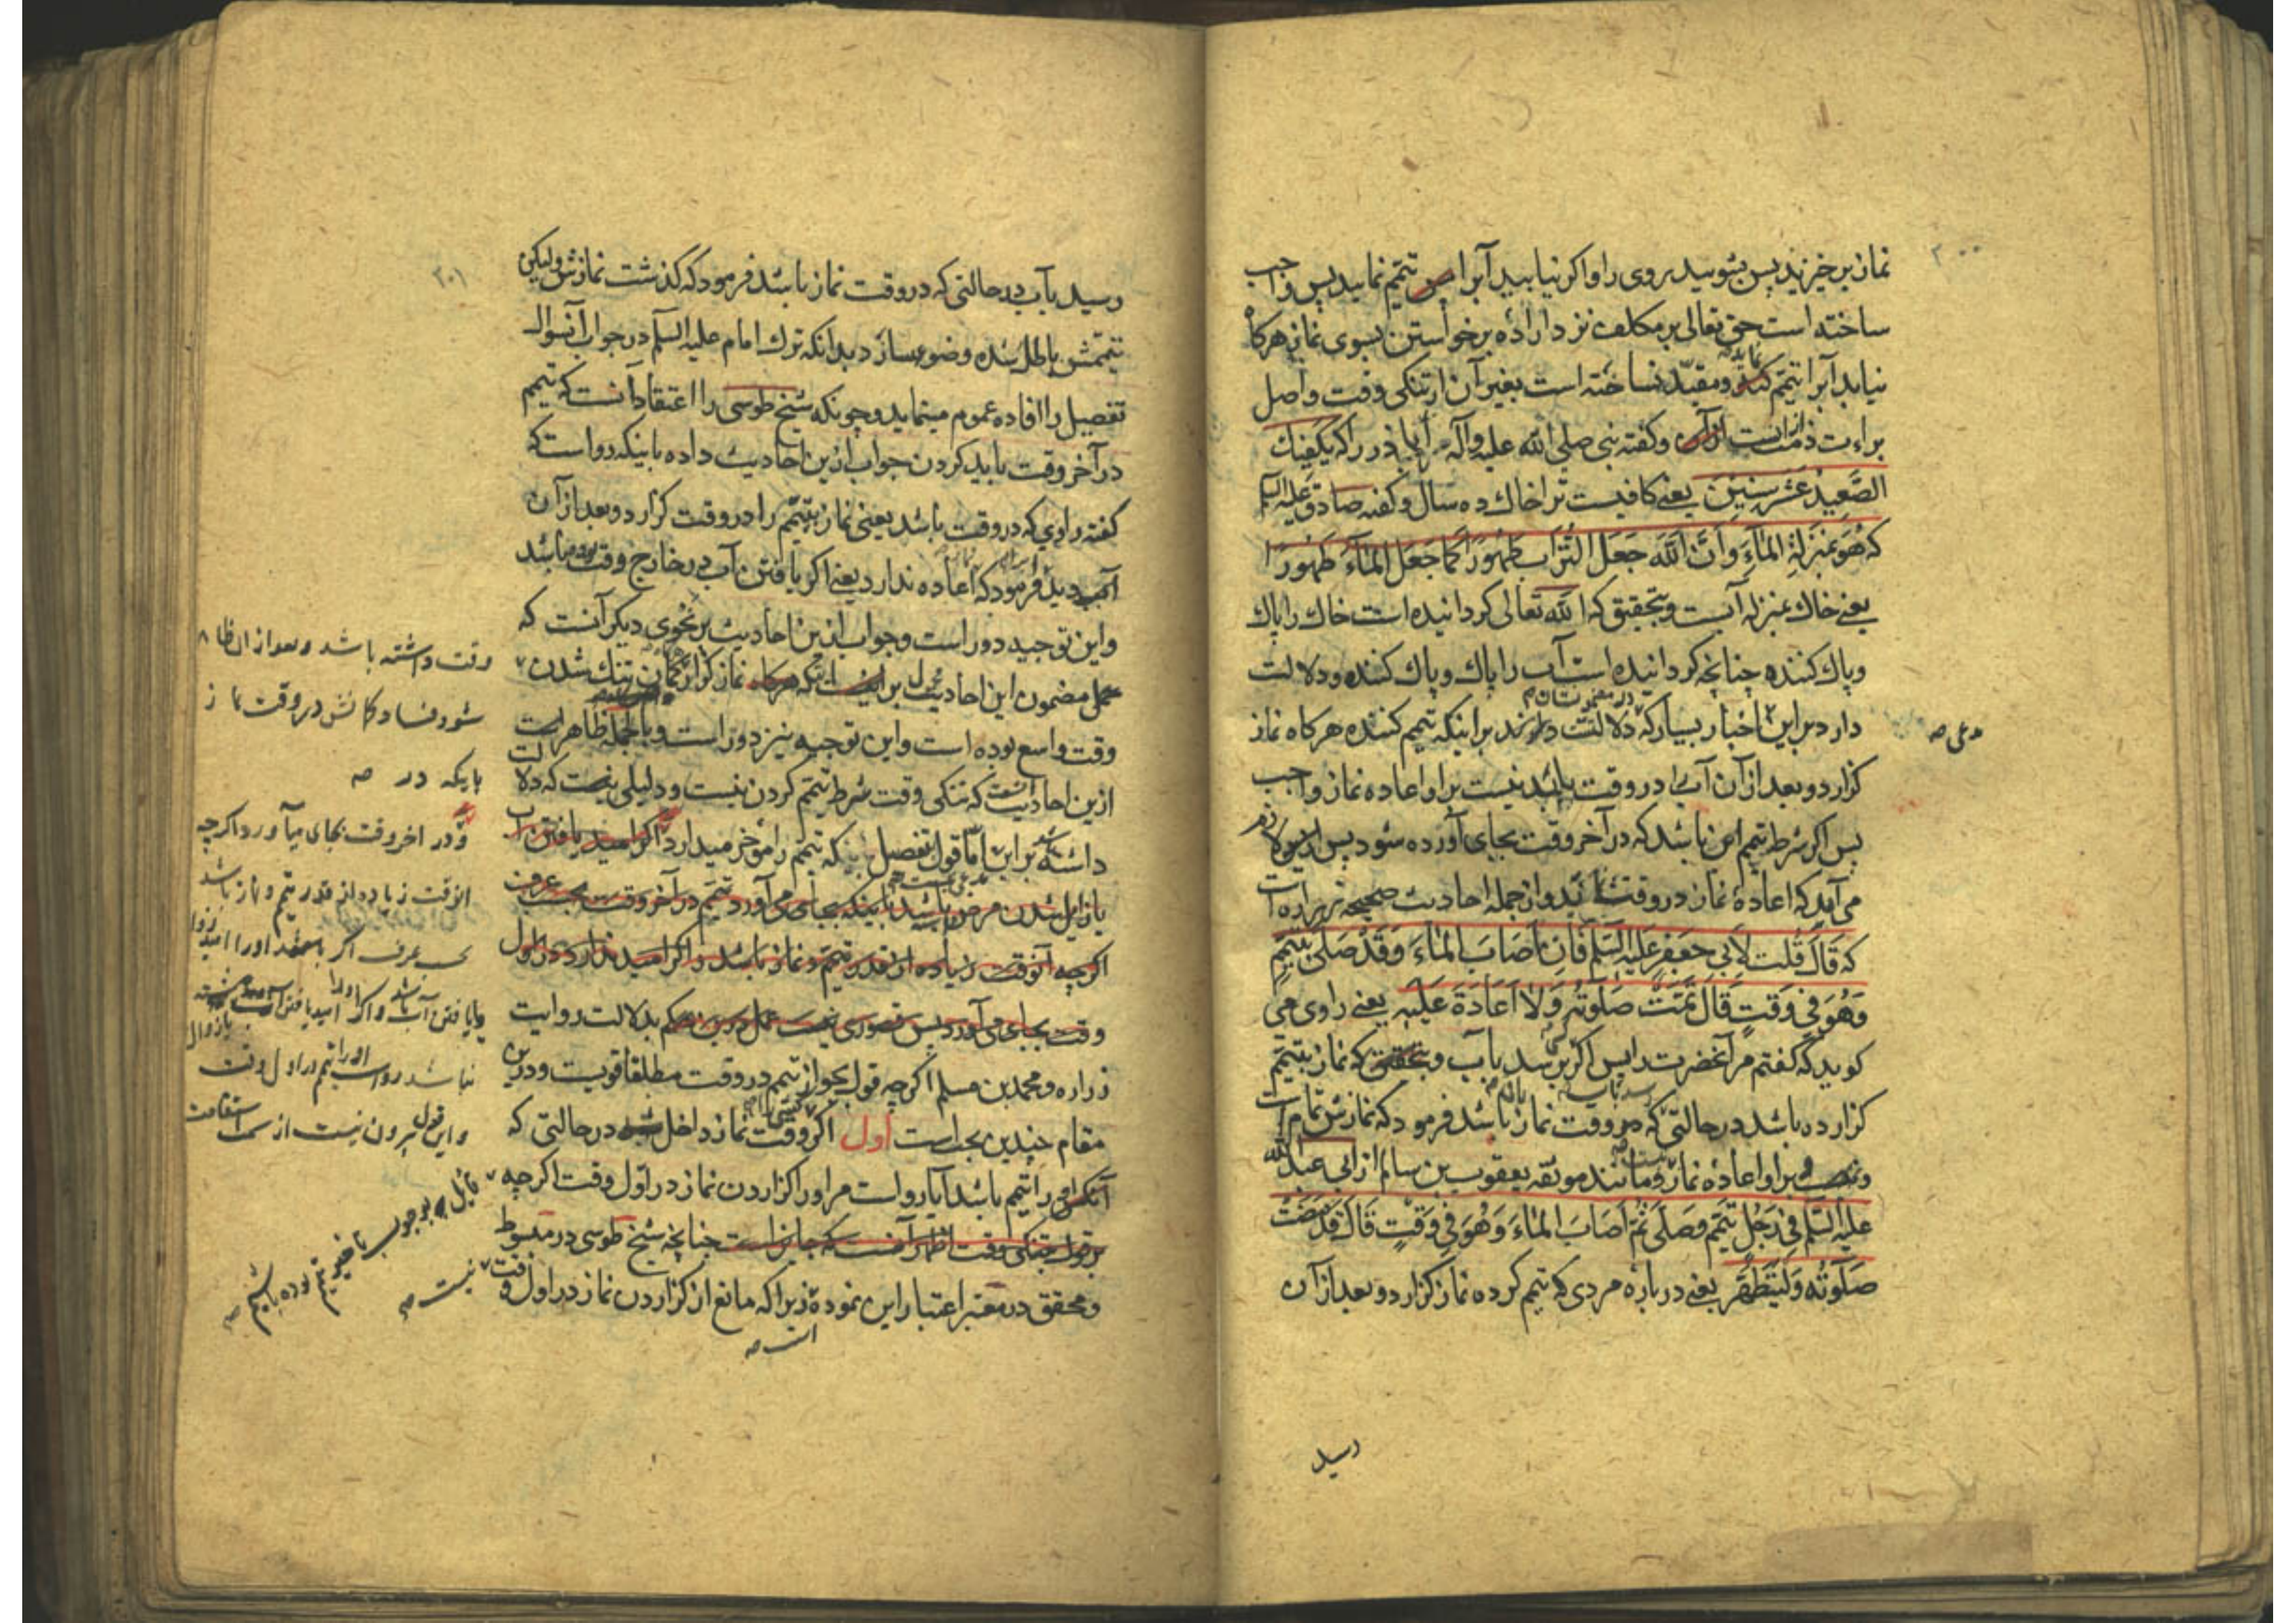 ۲۰۰
نماز برخیزید پس بشویید روی را و اکر نیابید آبرا پس تیمّم نمایید پس واجب
ساخته است حق تعالی بر مکلف نزد اراده برخواستن بسوی نماز هرکاه
نیابد آبرا تیمّم نماید و مقیّد نساخته است بغیر آن از تنکی وقت و اصل
براءت ذمت است از آن و کفته نبی صلی الله علیه وآله ابا ذر را که یکفیك
الصَّعِیدُ عَشْرَ سِنِینَ یعنے کافیست ترا خاك ده سال و کفته صادق علیه السلم
که هُوَ بِمَنزِلَةِ المَاءِ وَاَنَّ اللّهَ جَعَلَ التُّرَابَ طَهُورًا کَمَا جَعَلَ المَاءَ طَهُورًا
یعنے خاك بمنزله آبست و بتحقیق که الله تعالی کردانیده است خاك را پاك
و پاك کننده چنانچه کردانیده است آب را پاك و پاك کننده و دلالت
دارد براین اخبار بسیار که دلالت دارند بر اینکه تیمم کننده هرکاه نماز
کزارد و بعد از آن آب یابد در وقت نیست بر او اعاده نماز واجب
پس اکر شرط تیمم این باشد که در آخر وقت بجای آورده شود پس لازم
می آید که اعادهٔ نماز در وقت نماید و از جمله احادیث صحیحه زراره است
که قَالَ قُلت لِاَبی جعفرٍ علیه السّلم فَاِن اَصَابَ المَاءَ وَقَدْ صَلَّی بِتَیَمُّمٍ
وَهُوَ فِی وَقتٍ قَالَ تَمَّتْ صَلَوتُهُ وَلَا اِعَادَةَ عَلَیهِ یعنے راوی می
کوید که کفتم مر آنحضرت را پس اکر برسد بآب و بتحقیق که نماز بتیمّم
کزارده باشد در حالتی که در وقت نماز باشد فرمود که نمازش تمام است
و نیست بر او اعادهٔ نماز و مانند موثقه یعقوب بن سالم از ابی عبد الله
علیه السّلم فِی رَجُلٍ تَیَمَّمَ وَصَلَّی ثُمَّ اَصَابَ المَاءَ وَهُوَ فِی وَقْتٍ قَالَ قَدْ مَضَتْ
صَلَوتُهُ وَلْیَتَطَهَّرْ یعنے در بارهٔ مردی که تیمم کرده نماز کزارد و بعد از آن
رسید
۲۰۱
رسید بآب در حالتی که در وقت نماز باشد فرمود که کذشت نمازش ولیکن
تیممش باطل شده وضوء بسازد بدانکه ترك امام علیه السلم در جواب آنسوال
تفصیل را افاده عموم مینماید و چونکه شیخ طوسی را اعتقاد آنست که تیمم
در آخر وقت باید کردن جواب از این احادیث داده باینکه رواست که
کفته راوی که در وقت باشد یعنی نماز بتیمّم را در وقت کزارد و بعد از آن
آب دید فرمود که اعاده ندارد یعنے اکر یافتن آب در خارج وقت بوده باشد
و این توجیه دور است و جواب از این احادیث بر نحوی دیکر آنست که
مضمون این احادیث محمول بر آنکه نماز کزار کمان تنك شدن
وقت واسع بوده است و این توجیه نیز دور است و بالجمله ظاهر است
ازین احادیث که تنکی وقت شرط تیمّم کردن نیست و دلیلی نیست که دلالت
داشته بر این امّا قول تفصیل که تیمم را مؤخر میدارد اکر امید یافتن آب
یا زایل شدن مرض باشد باینکه بجای می آورد تیمّم در آخر وقت بحسب عرف
اکرچه آنوقت زیاده از قدر تیمّم و نماز باشد و اکر امید ندارد در اول
وقت بجای می آورد پس قصوری نیست عمل درین حکم بدلالت روایت
زراره و محمد بن مسلم اکرچه قول بجواز تیمم در وقت مطلقا قویست و درین
مقام چندین بحث است اول اکر وقت نماز داخل شد در حالتی که
آنکس را تیمم باشد آیا رواست مر او را کزاردن نماز در اوّل وقت اکرچه
چنانچه شیخ طوسی در مبسوط
و محقق در معتبر اعتبار این نموده زیرا که مانع از کزاردن نماز در اول وقت
است صه
وقت داشته باشد و بعد از ان ظاهر
شود فساد کمانش در وقت نماز
باینکه در صه
و در اخر وقت بجای میآورد اکرچه
انوقت زیاده از قدر تیمم و نماز باشد
بحسب عرف اکر باشد او را امید زوال
یا یافتن آب و اکر او را امید یافتن آب
نباشد رواست او را تیمم در اول وقت
و این قول بیرون نیست از استقامت
قایل بوجوب تاخیر تیمم بوده باشیم صه
نیست صه